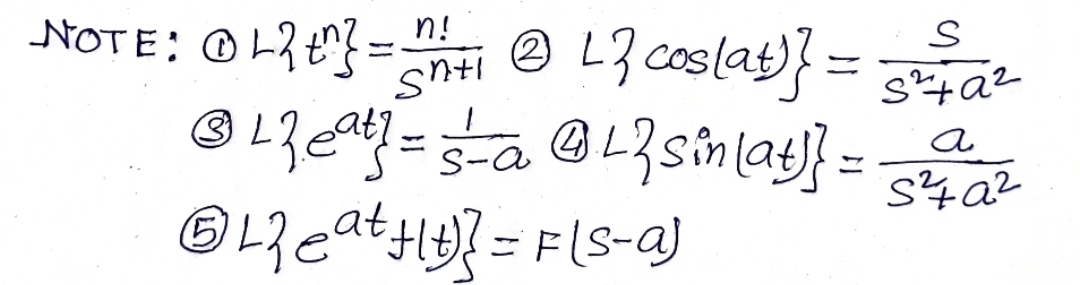 NOTE: ① L{t^n} = n!/s^(n+1) ② L{cos(at)} = s/(s²+a²)
③ L{e^(at)} = 1/(s-a) ④ L{sin(at)} = a/(s²+a²)
⑤ L{e^(at) f(t)} = F(s-a)